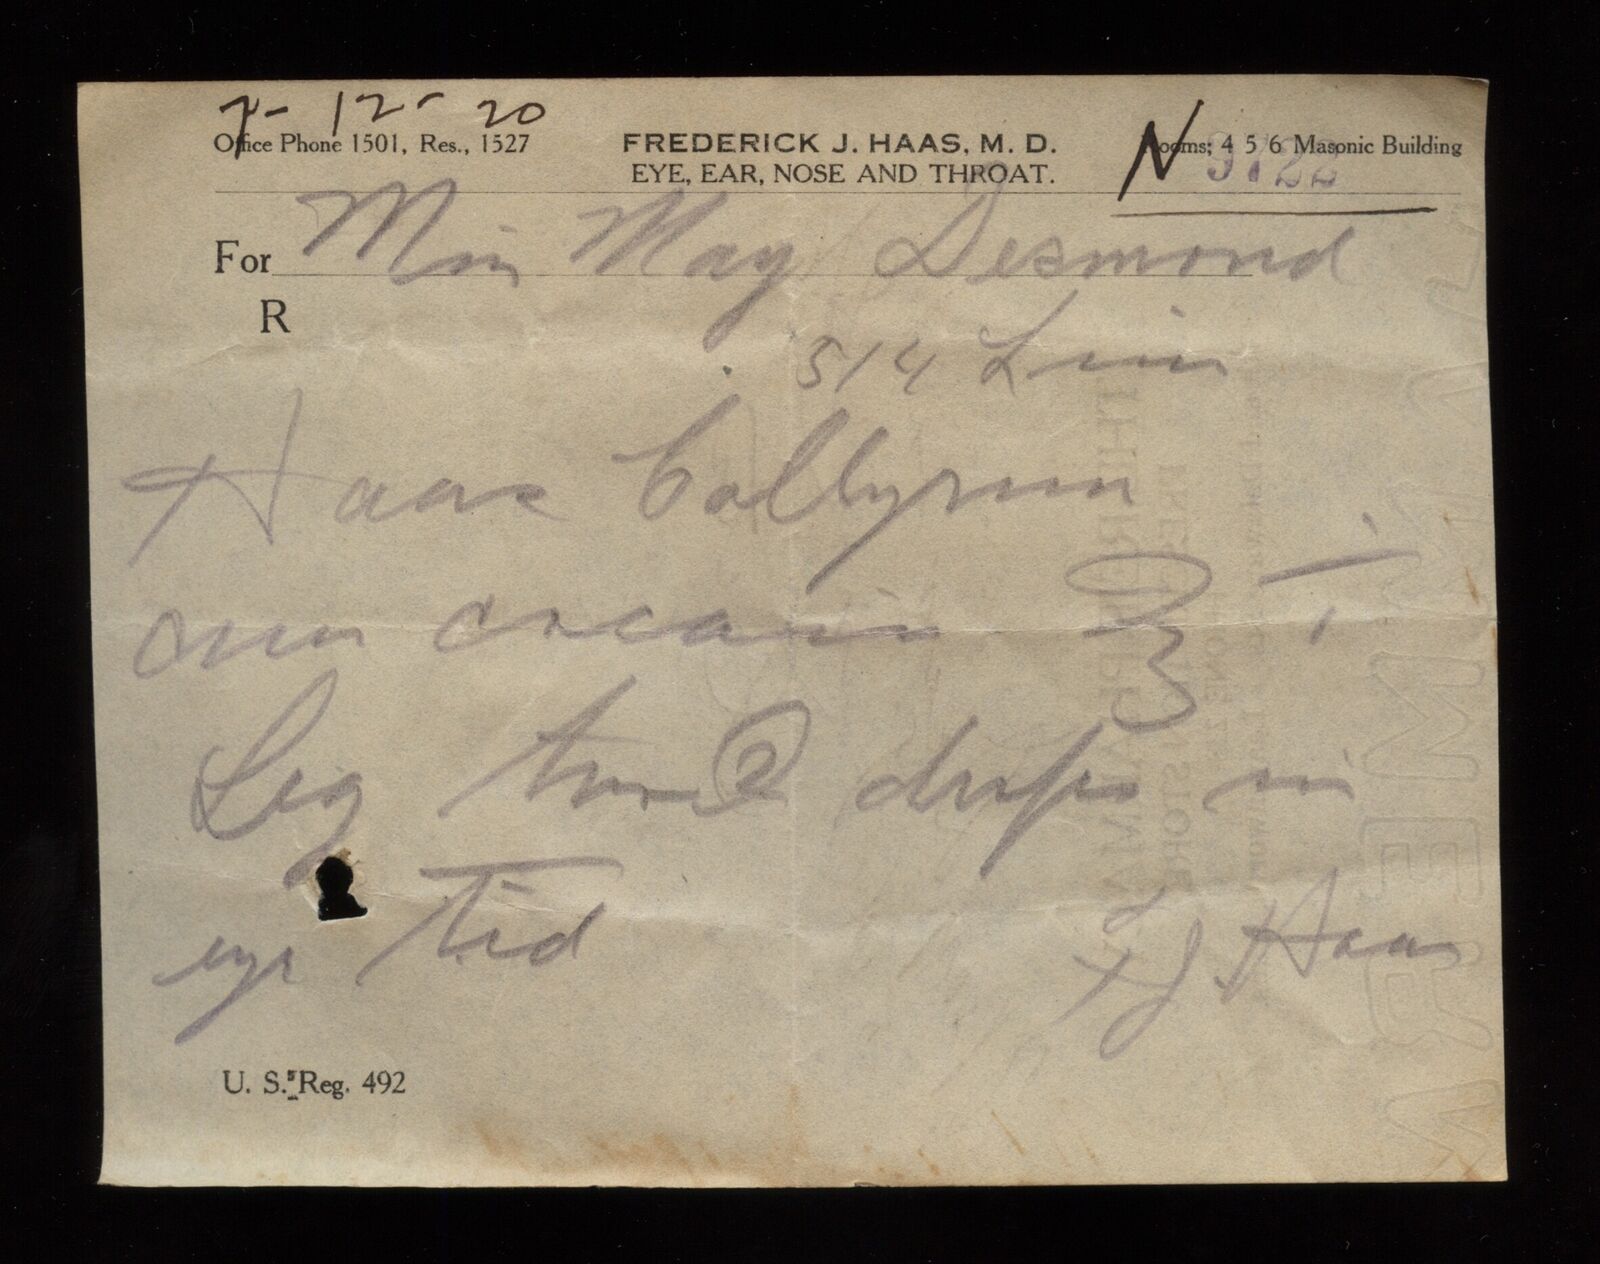 7- 12- 20
Office Phone 1501, Res., 1527
FREDERICK J. HAAS, M. D.
EYE, EAR, NOSE AND THROAT.
Rooms; 4 5 6 Masonic Building
N 3122
For Miss May Desmond
R
514 Linn
Haas Collyrium
cocain ʒ i
Sig two 2 drops in
eye tid
F J Haas
U. S. Reg. 492